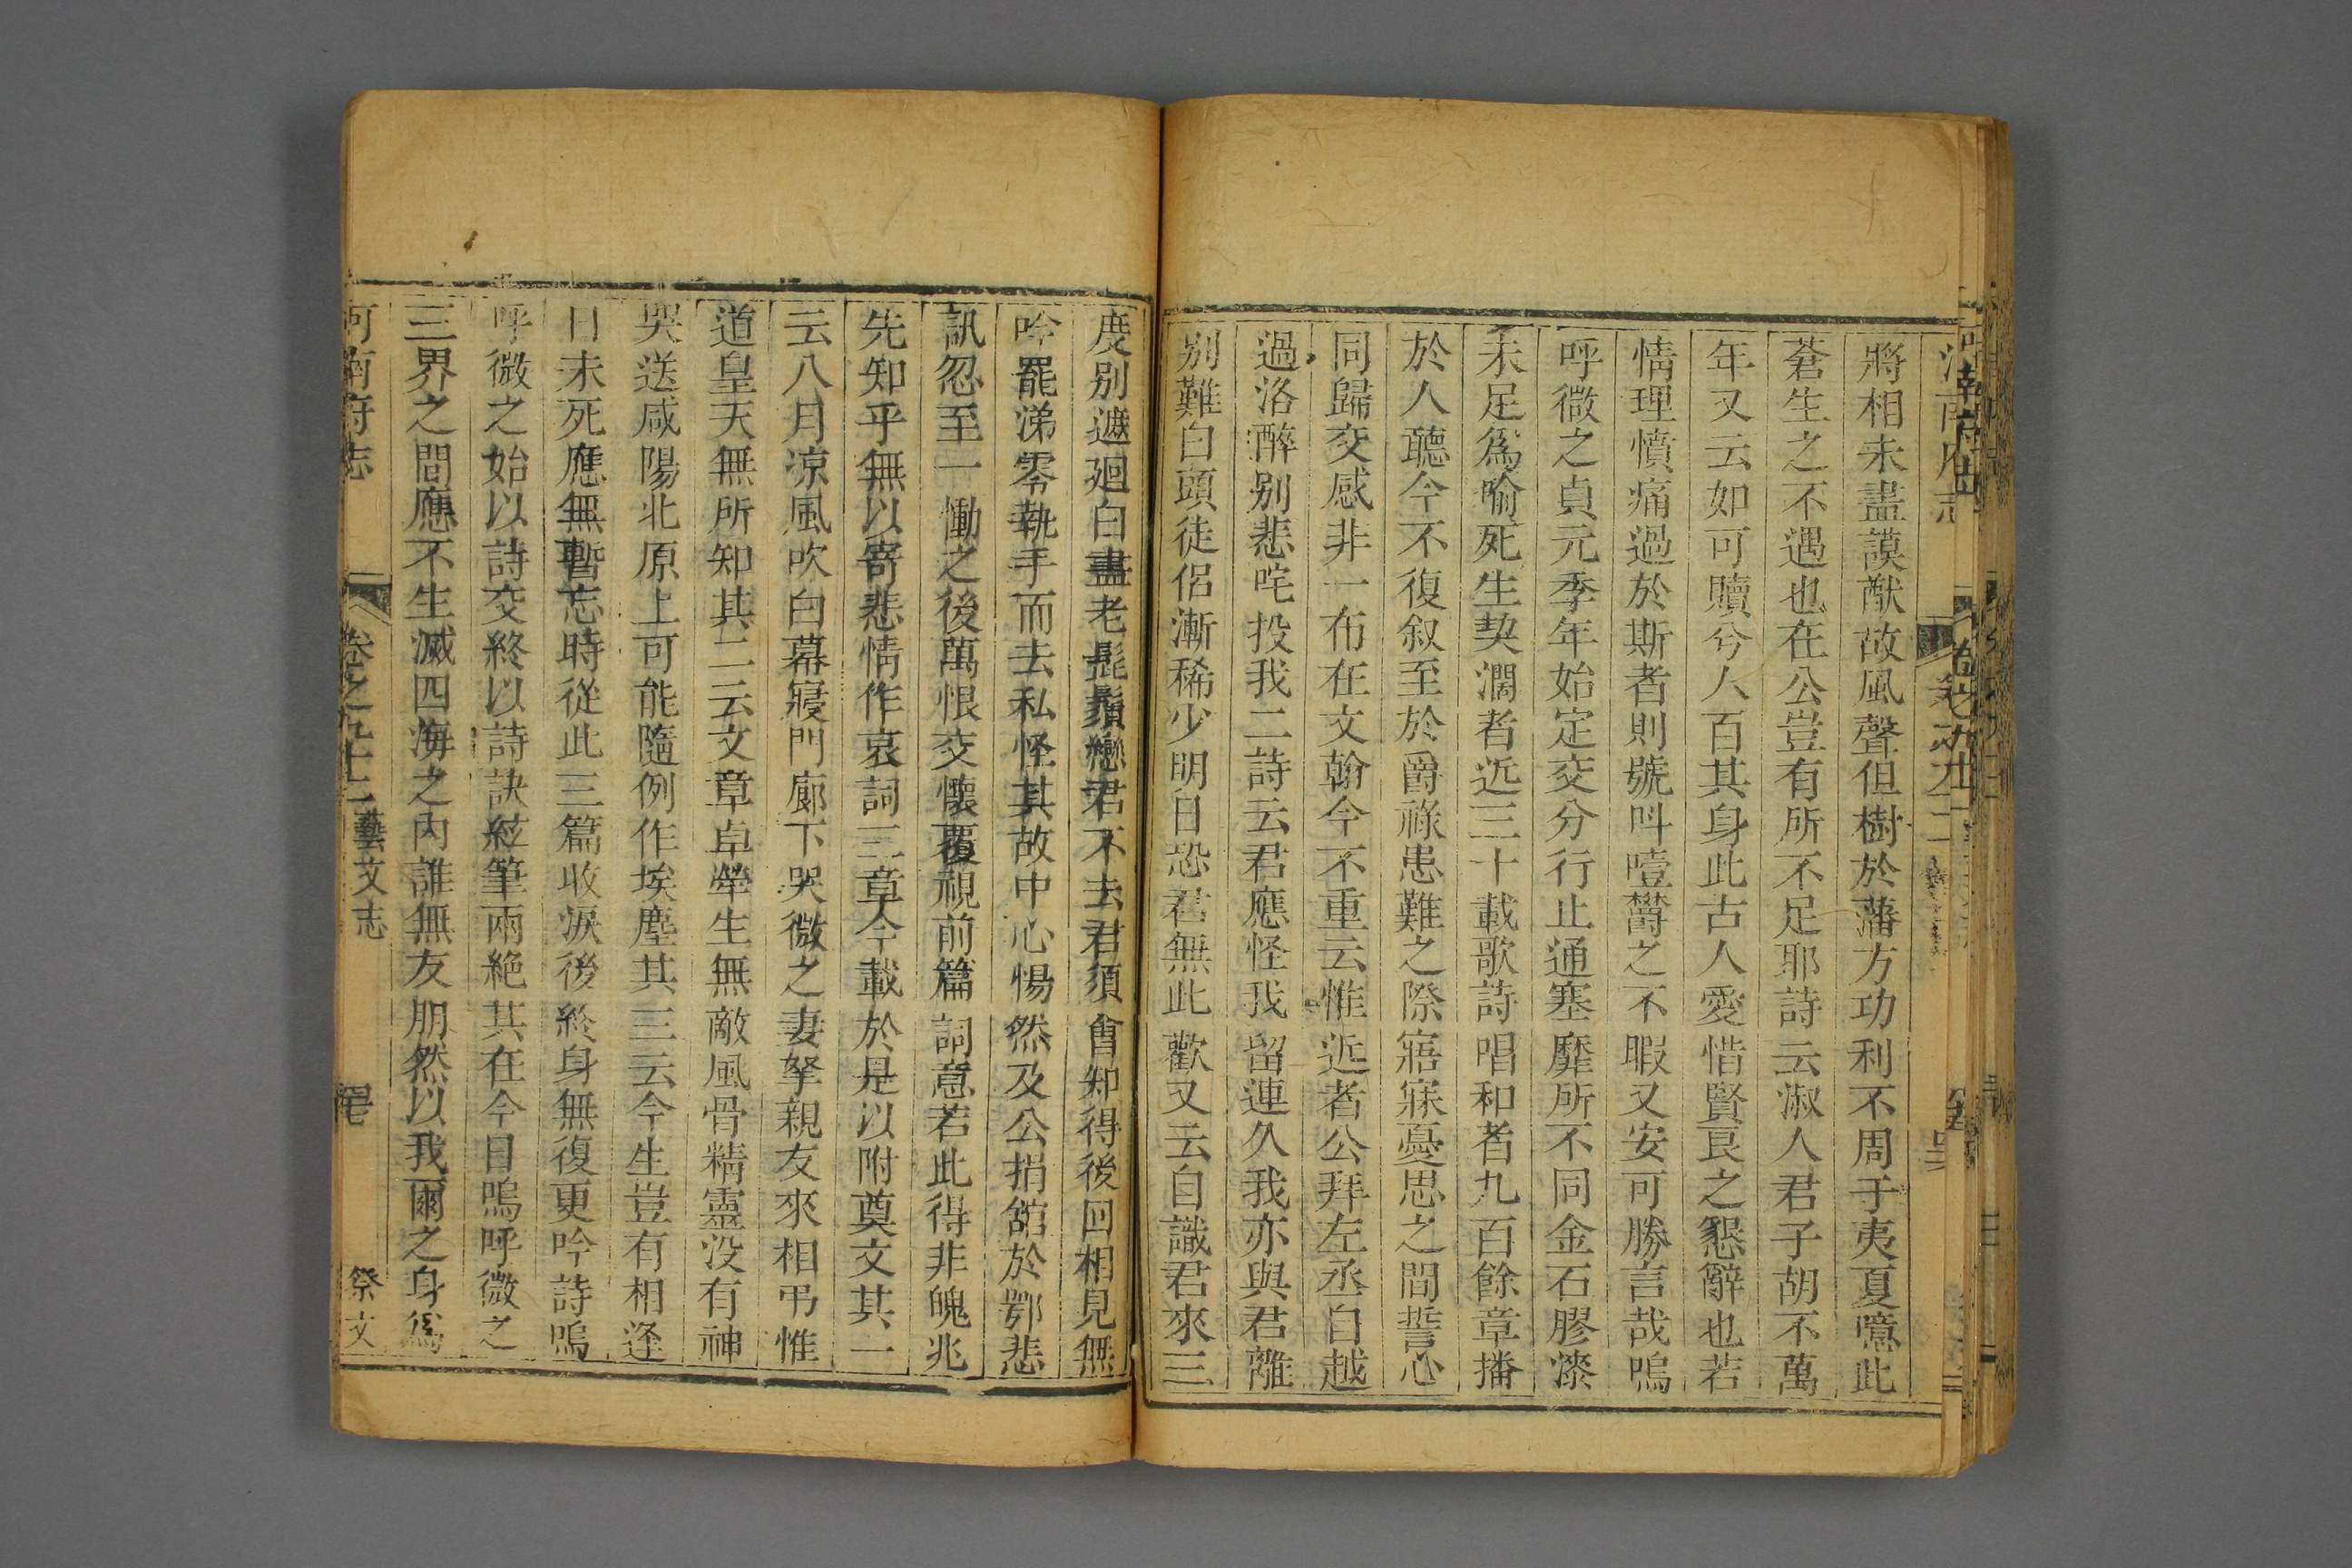 將相未盡謨猷故風聲但樹於藩方功利不周于夷夏噫此
蒼生之不遇也在公豈有所不足耶詩云淑人君子胡不萬
年又云如可贖兮人百其身此古人愛惜賢良之懇辭也若
情理憤痛過於斯者則號呌噎欝之不暇又安可勝言哉嗚
呼微之貞元季年始定交分行止通塞靡所不同金石膠漆
未足爲喻死生契濶者近三十載歌詩唱和者九百餘章播
於人聽今不復叙至於爵祿患難之際寤寐憂思之間誓心
同歸交感非一布在文翰今不重云惟近者公拜左丞自越
過洛醉别悲咤投我二詩云君應怪我留連久我亦與君離
别難白頭徒侣漸稀少明日恐君無此歡又云自識君來三
度别遮廻白盡老髭鬚戀君不去君須會知得後回相見無
吟罷涕零執手而去私怪其故中心惕然及公捐舘於鄂悲
訊忽至一慟之後萬恨交懷覆視前篇詞意若此得非魄兆
先知乎無以寄悲情作哀詞三章今載於是以附奠文其一
云八月凉風吹白幕寢門廊下哭微之妻孥親友來相弔惟
道皇天無所知其二云文章卓犖生無敵風骨精靈没有神
哭送咸陽北原上可能隨例作埃塵其三云今生豈有相逢
日未死應無暫忘時從此三篇收淚後終身無復更吟詩嗚
呼微之始以詩交終以詩訣絃筆兩絶其在今日嗚呼微之
三界之間應不生滅四海之内誰無友朋然以我爾之身爲
河南府志 卷之九十二 藝文志 祭文